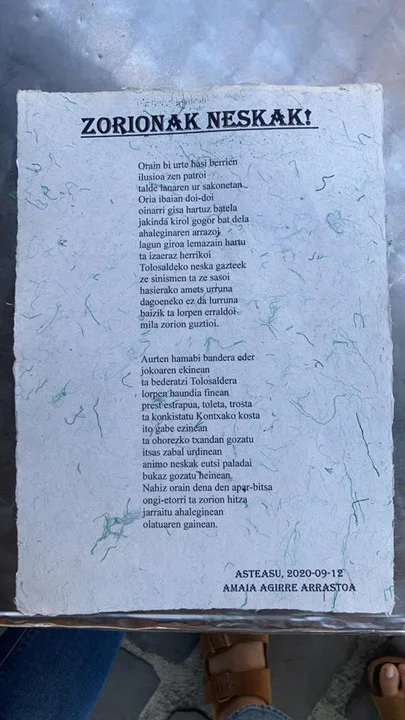 ZORIONAK NESKAK!
Orain bi urte hasi berrien
ilusioa zen patroi
talde lanaren ur sakonetan
Oria ibaian doi-doi
oinarri gisa hartuz batela
jakinda kirol gogor bat dela
ahaleginaren arrazoj
lagun giroa lemazain hartu
ta izaeraz herrikoi
Tolosaldeko neska gazteek
ze sinismen ta ze sasoi
hasierako amets urruna
dagoeneko ez da lurruna
baizik ta lorpen erraldoi
mila zorion guztioi.
Aurten hamabi bandera eder
jokoaren ekinean
ta bederatzi Tolosaldera
lorpen haundia finean
prest estrapua, toleta, trosta
ta konkistatu Kontxako kosta
ito gabe ezinean
ta ohorezko txandan gozatu
itsas zabal urdinean
animo neskak eutsi paladai
bukaz gozatu heinean.
Nahiz orain dena den apar-bitsa
ongi-etorri ta zorion hitza
jarraitu ahaleginean
olatuaren gainean.
ASTEASU, 2020-09-12
AMAIA AGIRRE ARRASTOA